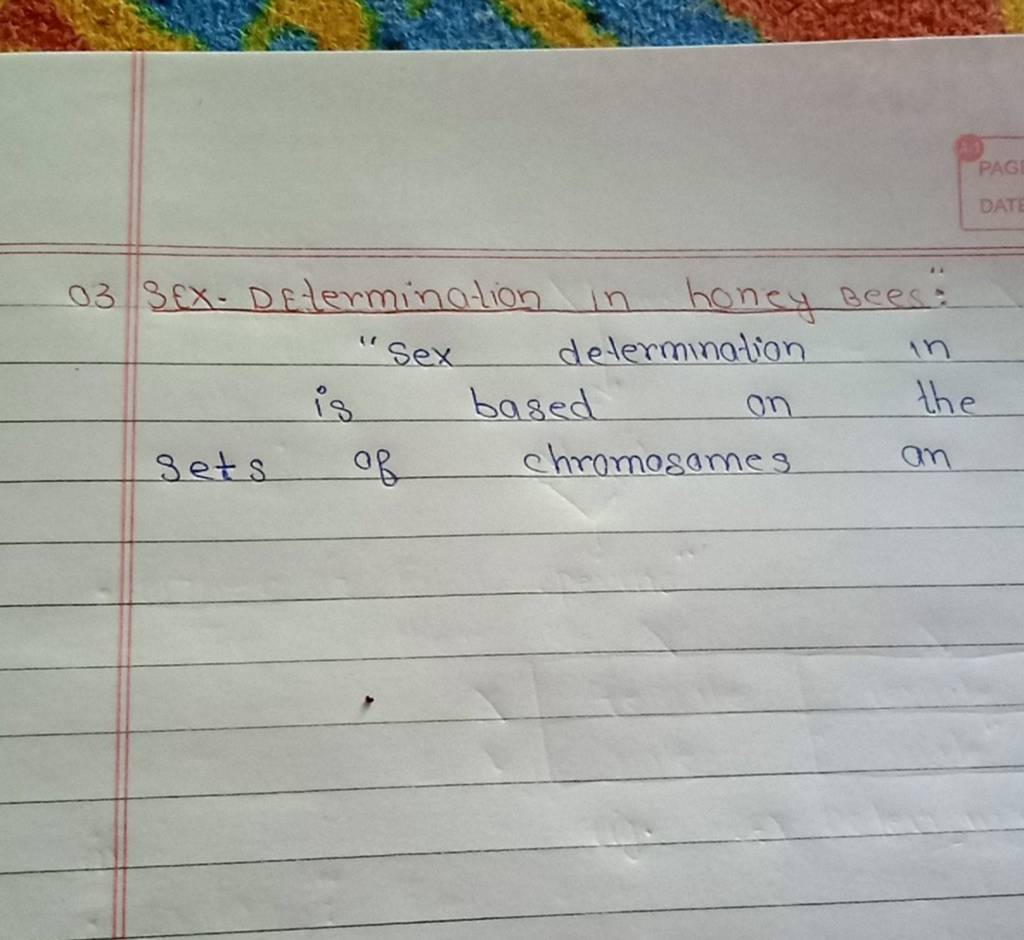 PAGE
DATE
03 SEX- DEtermination in honey Bees:"
"Sex determination in
is based on the
sets of chromosomes an